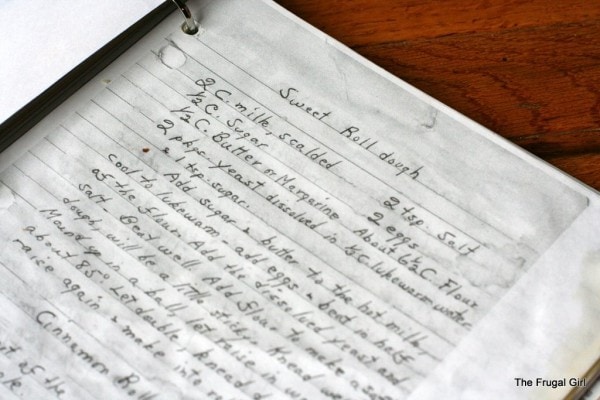 Sweet Roll dough
2 C. milk, scalded 2 tsp. salt
1/2 C. Sugar 2 eggs
1/2 C. Butter or Margarine About 6 1/2 C. Flour
2 pkg. Yeast dissolved in 1/2 C. lukewarm water
& 1 tsp. sugar.
Add sugar & butter to the hot milk
cool to lukewarm - add eggs & beat
as the flour. Add the dissolved yeast and
salt. Beat well. Add flour to make a
dough, will be a little sticky. Knead
Mound up in a ball, let rise in
about 85° Let double, knead
raise again & make into
Cinnamon Roll
of the
The Frugal Girl